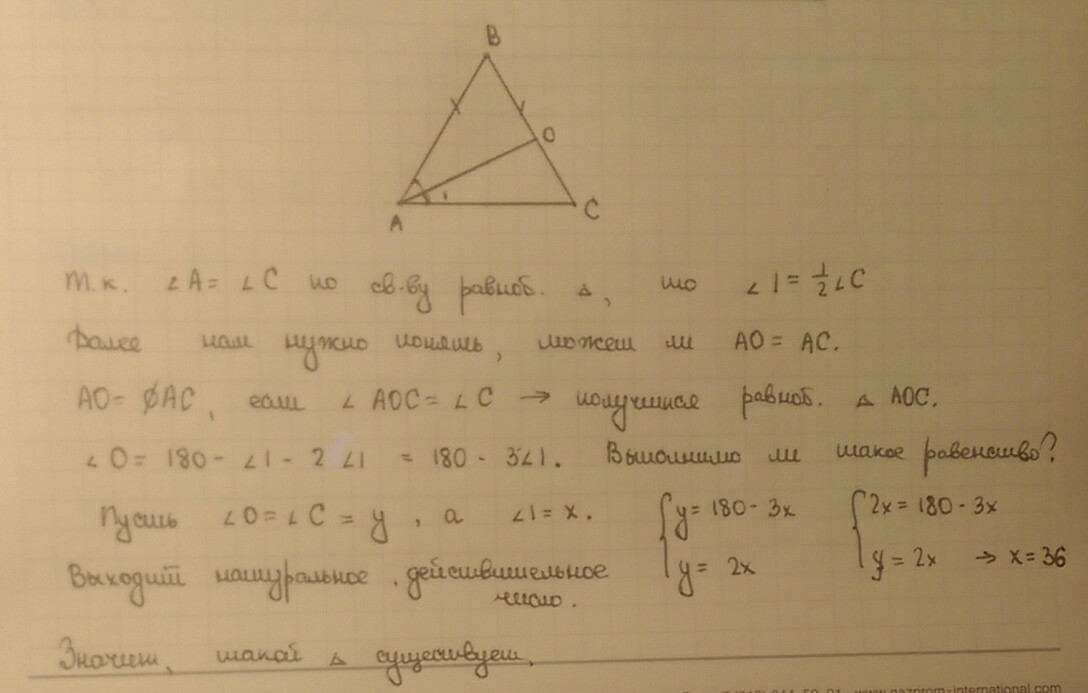 B
O
A
1
C
Т.к. ∠A = ∠C по св-ву равноб. △, то ∠1 = 1/2 ∠C
Далее нам нужно понять, может ли AO = AC.
AO = AC, если ∠AOC = ∠C → получится равноб. △ AOC.
∠O = 180 - ∠1 - 2∠1 = 180 - 3∠1. Выполнимо ли такое равенство?
Пусть ∠O = ∠C = y, а ∠1 = x. { y = 180 - 3x { 2x = 180 - 3x
y = 2x y = 2x → x = 36
Выходит натуральное, действительное
число.
Значит, такой △ существует.
www.gazprom-international.com